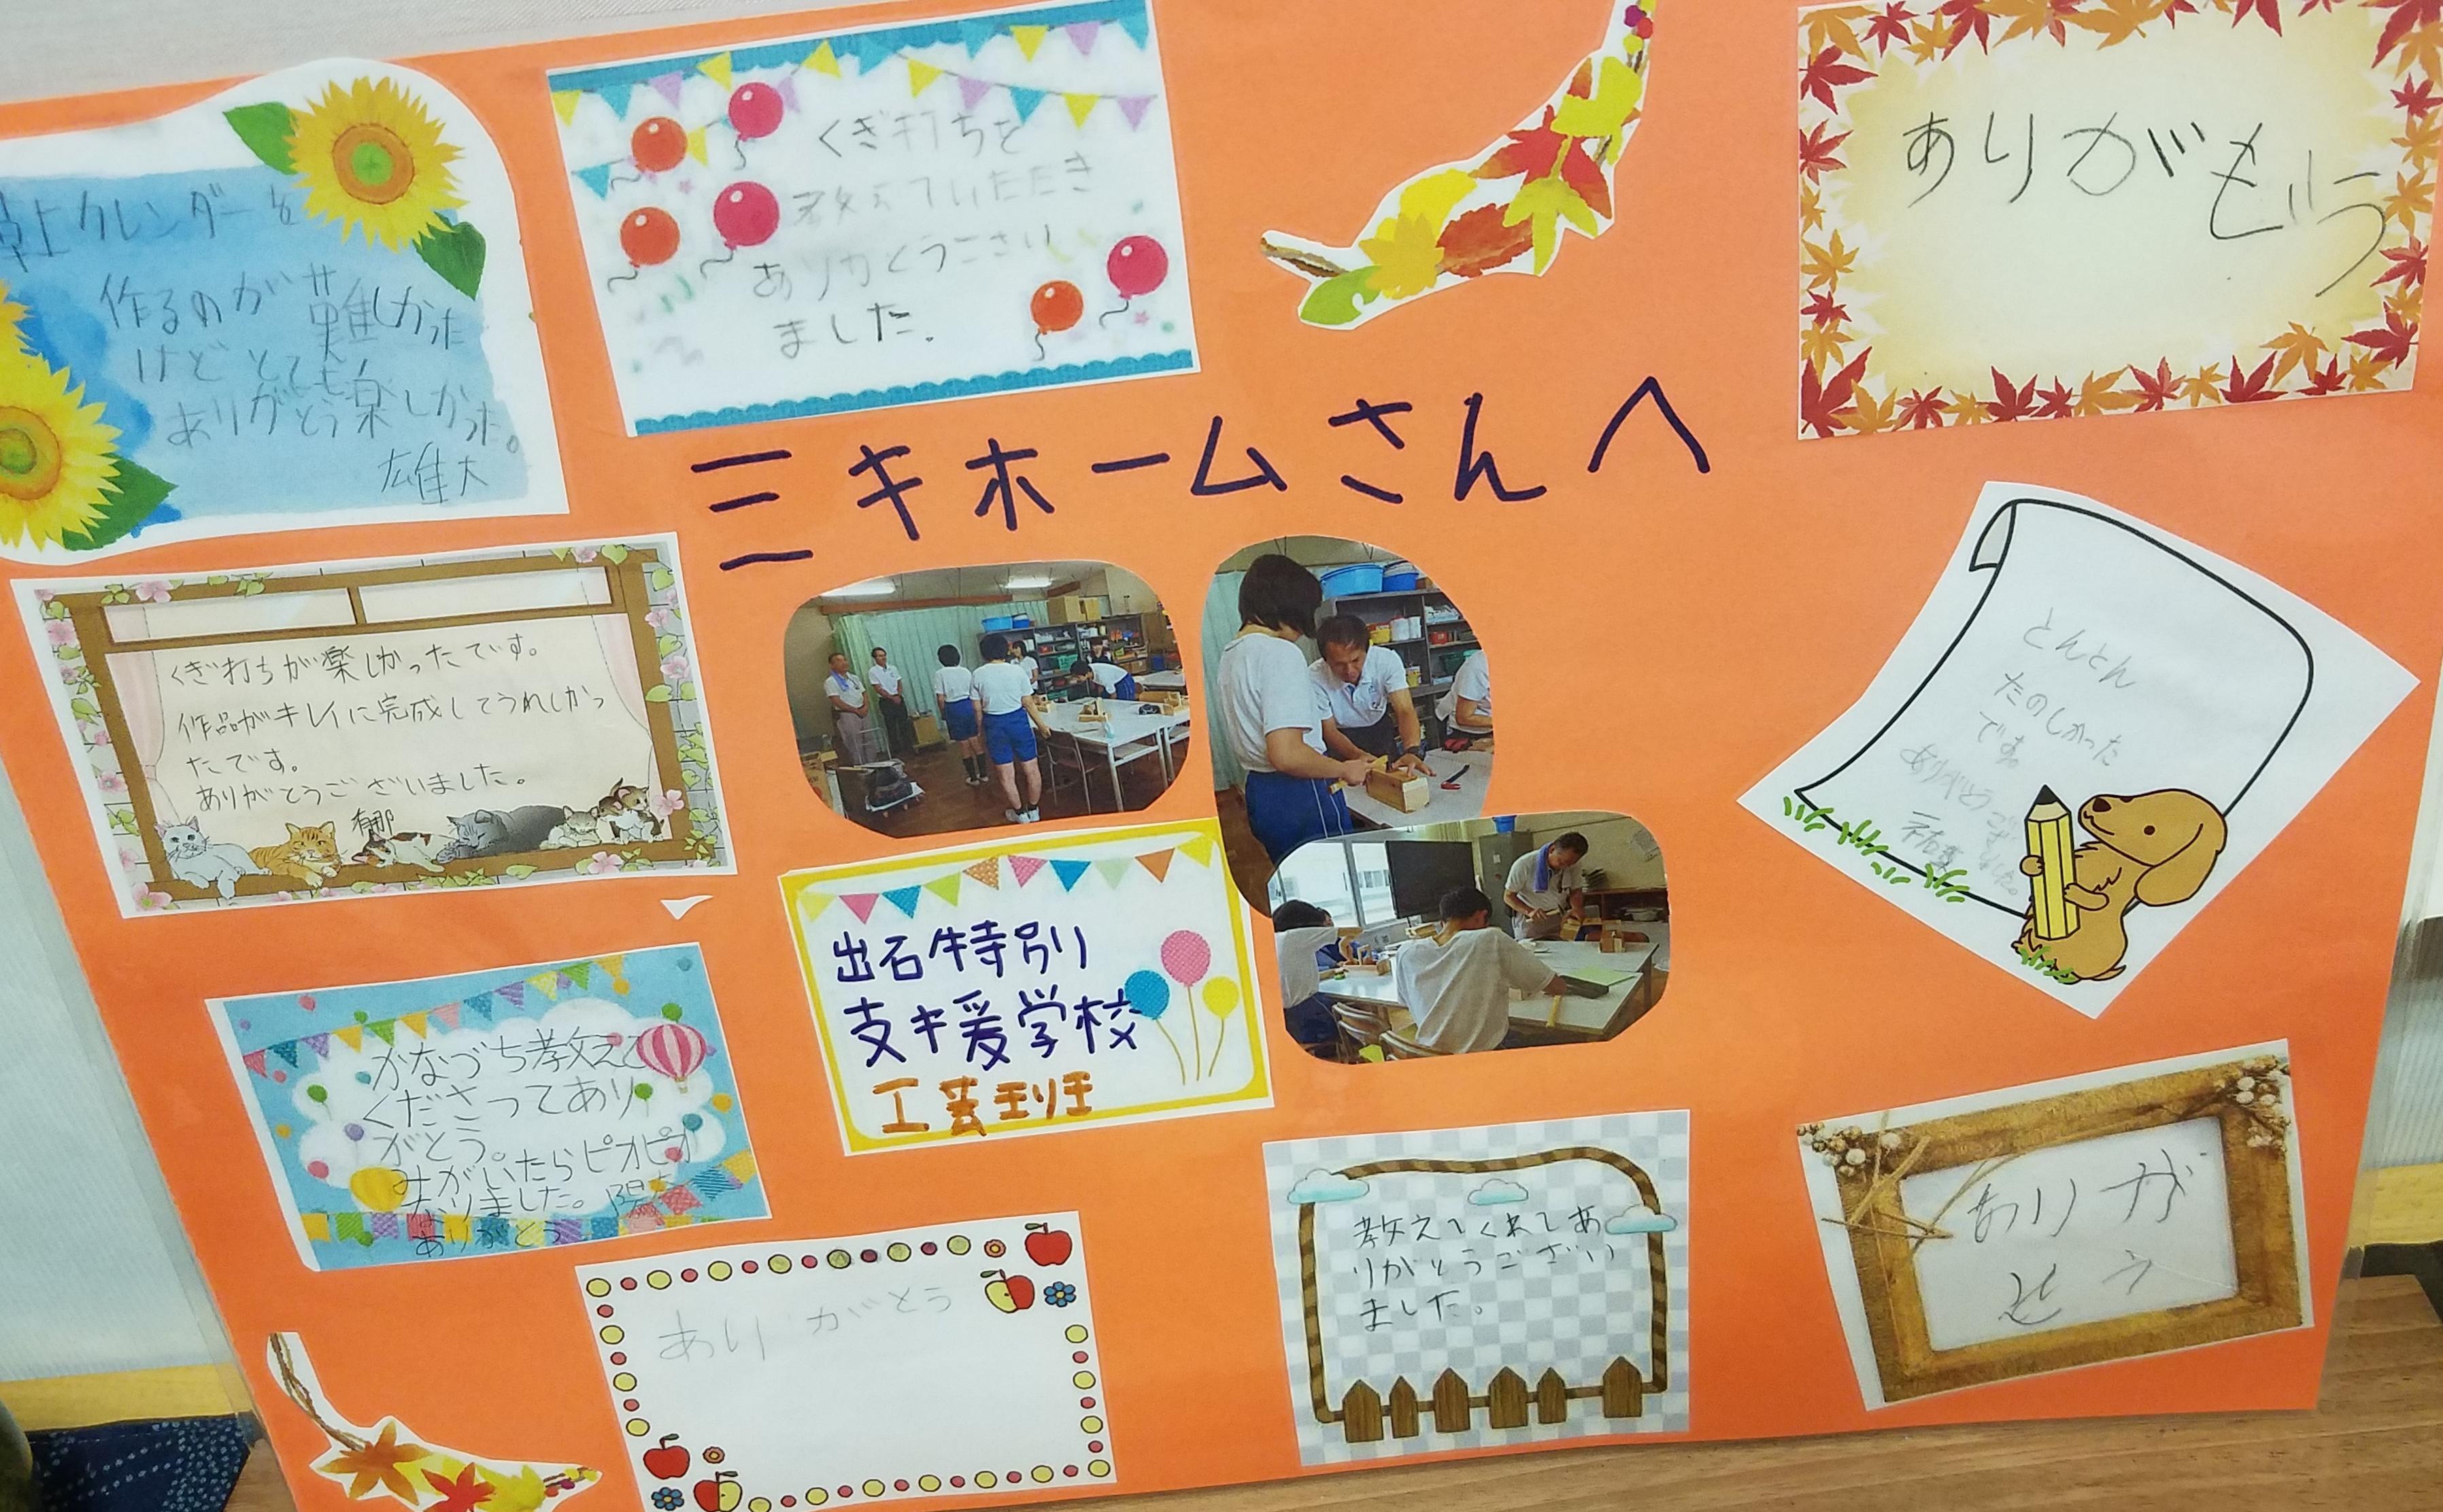 卓上カレンダーを
作るのが難しかった
けどとても楽しかった。
ありがとう
雄大
くぎ打ちを
教えていただき
ありがとうござい
ました.
ありがとう
ミキホームさんへ
くぎ打ちが楽しかったです。
作品がキレイに完成してうれしかっ
たです。
ありがとうございました。
とんとん
たのしかった
です。
かなづち教えて
くださってあり
がとう。
みがいたらピカピカ
なりました。
ありがとう
出石特別
支援学校
工芸班
教えてくれてあ
りがとうござい
ました。
ありが
とう
ありがとう